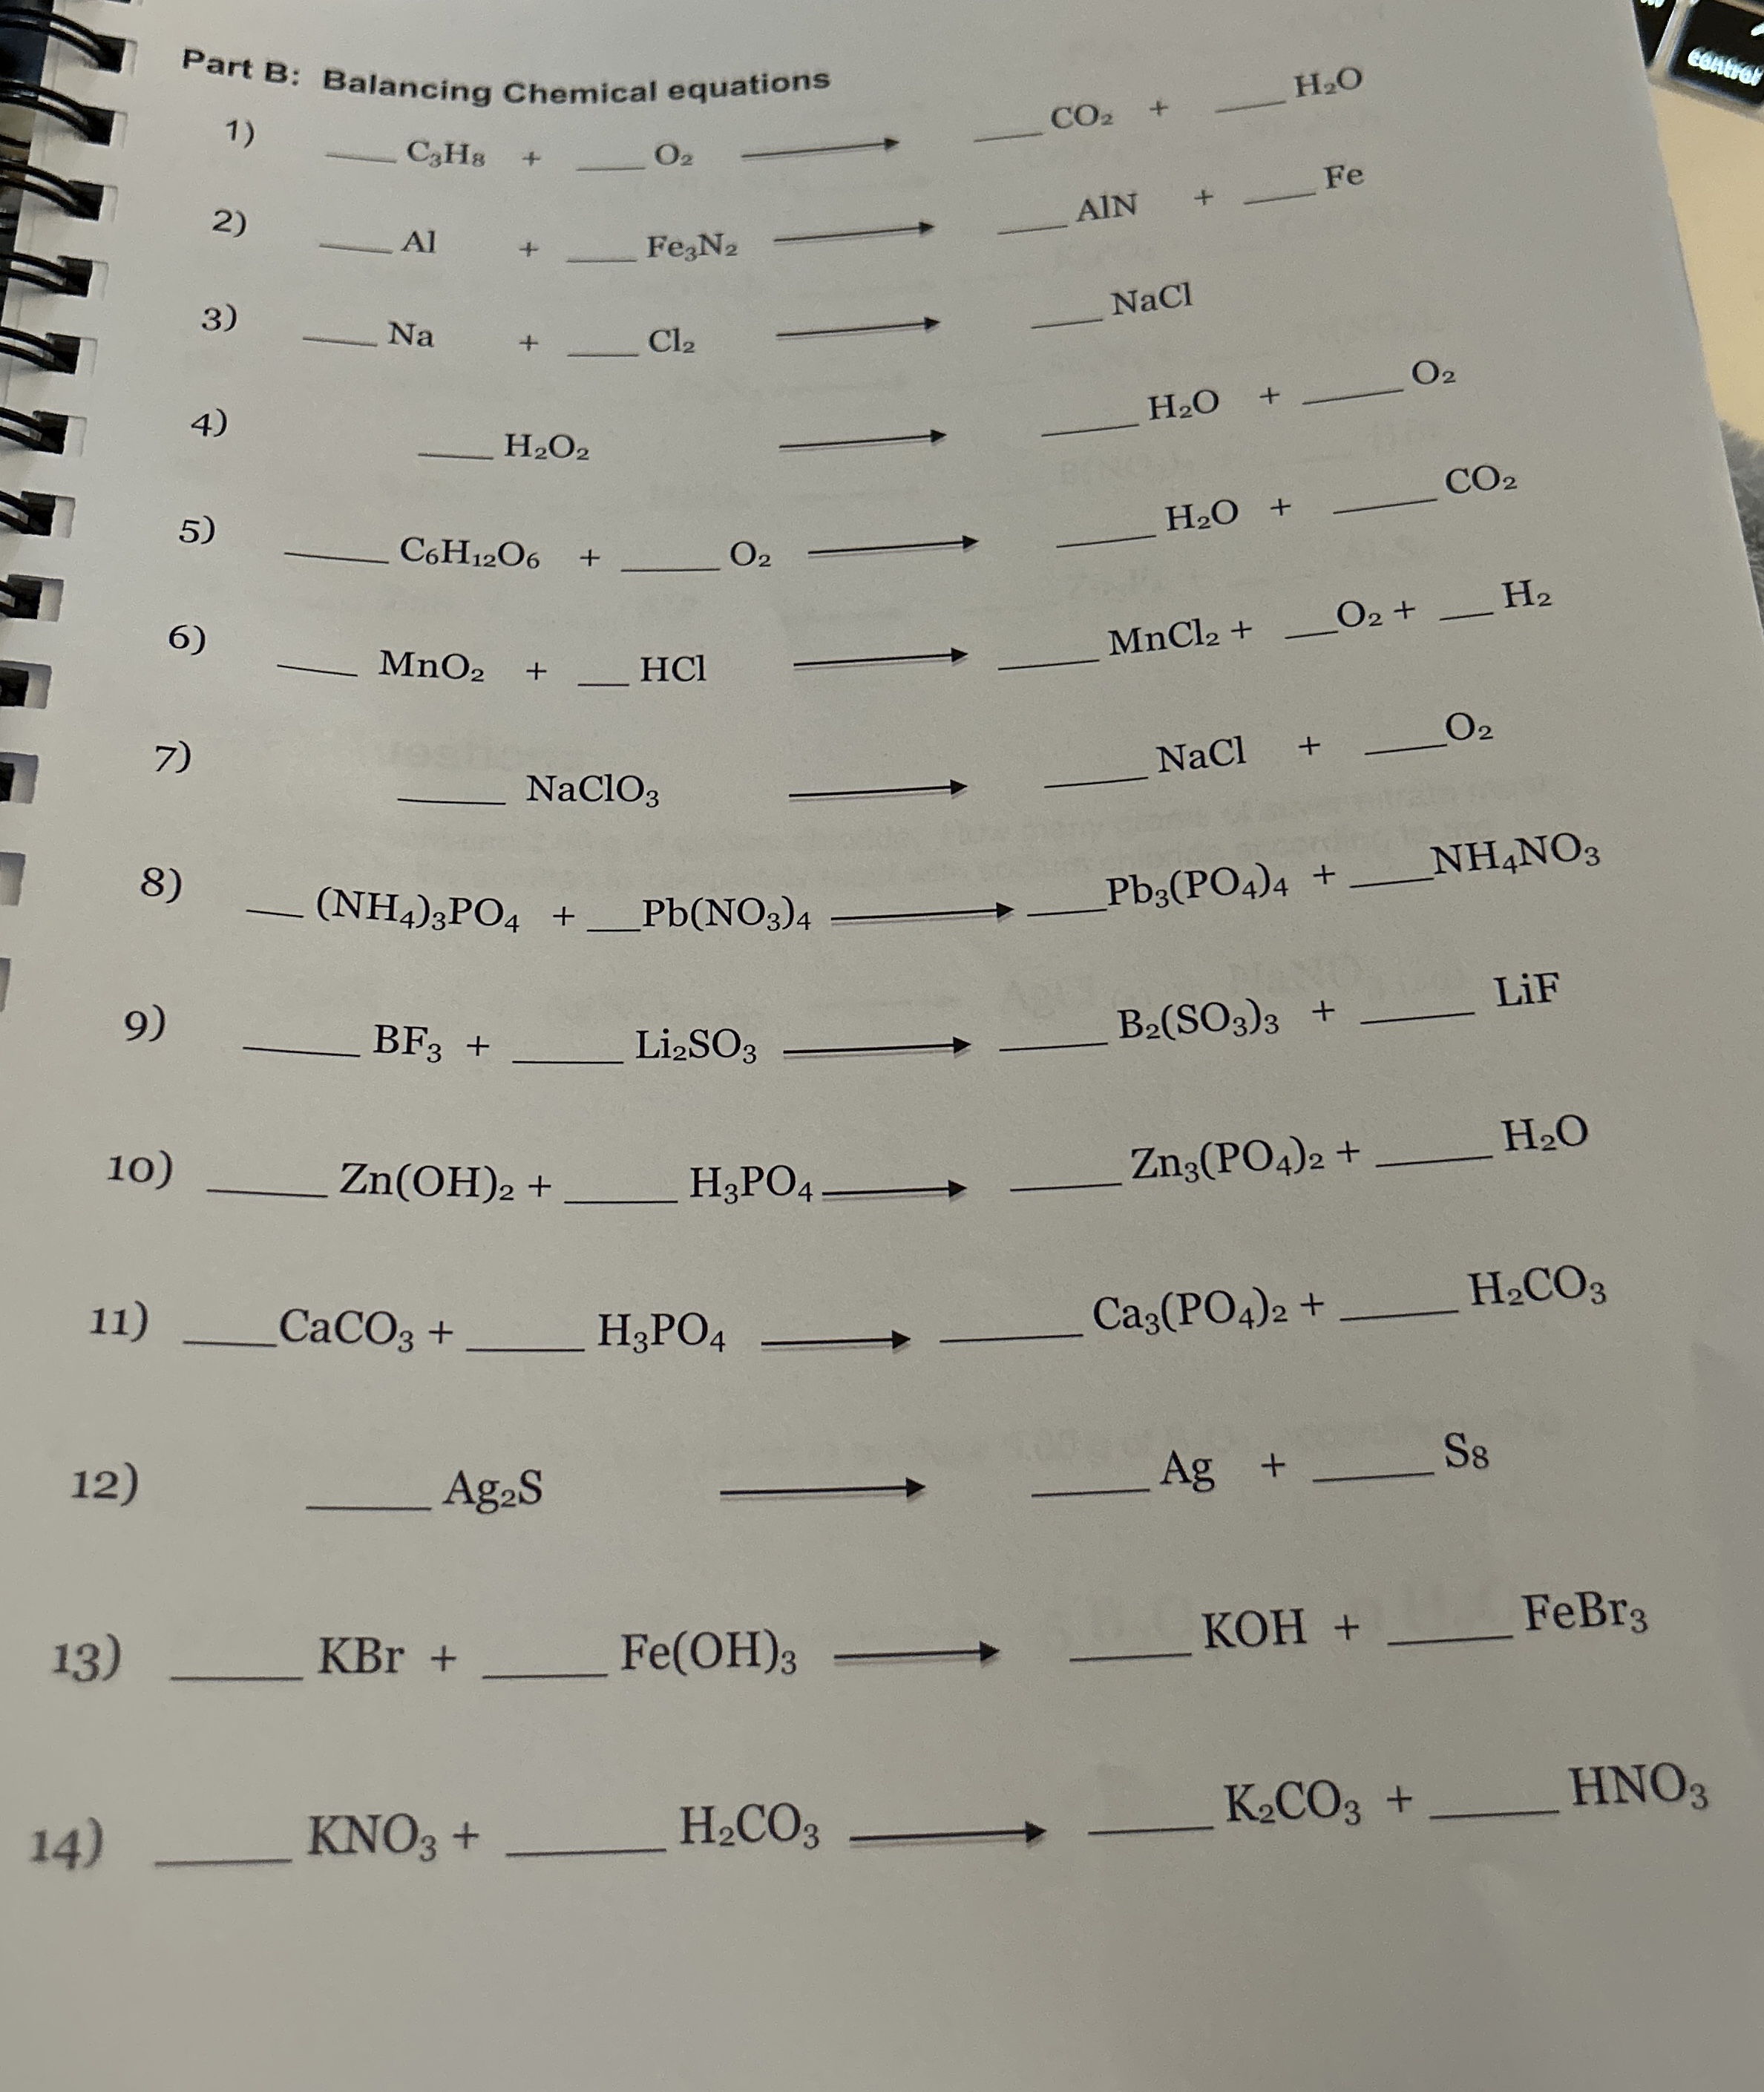 control
Part B: Balancing Chemical equations
1) ____ C₃H₈ + ____ O₂ ⟶ ____ CO₂ + ____ H₂O
2) ____ Al + ____ Fe₃N₂ ⟶ ____ AlN + ____ Fe
3) ____ Na + ____ Cl₂ ⟶ ____ NaCl
4) ____ H₂O₂ ⟶ ____ H₂O + ____ O₂
5) ____ C₆H₁₂O₆ + ____ O₂ ⟶ ____ H₂O + ____ CO₂
6) ____ MnO₂ + ___ HCl ⟶ ____ MnCl₂ + ___O₂ + ___ H₂
7) ____ NaClO₃ ⟶ ____ NaCl + ____O₂
8) ___ (NH₄)₃PO₄ + ___Pb(NO₃)₄ ⟶ ____Pb₃(PO₄)₄ + ____NH₄NO₃
9) ____ BF₃ + ____ Li₂SO₃ ⟶ ____ B₂(SO₃)₃ + ____ LiF
10) ____ Zn(OH)₂ + ____ H₃PO₄ ⟶ ____ Zn₃(PO₄)₂ + ____ H₂O
11) ____CaCO₃ + ____ H₃PO₄ ⟶ ____ Ca₃(PO₄)₂ + ____ H₂CO₃
12) ____ Ag₂S ⟶ ____ Ag + ____ S₈
13) ____ KBr + ____ Fe(OH)₃ ⟶ ____ KOH + ____ FeBr₃
14) ____ KNO₃ + ____ H₂CO₃ ⟶ ____ K₂CO₃ + ____ HNO₃